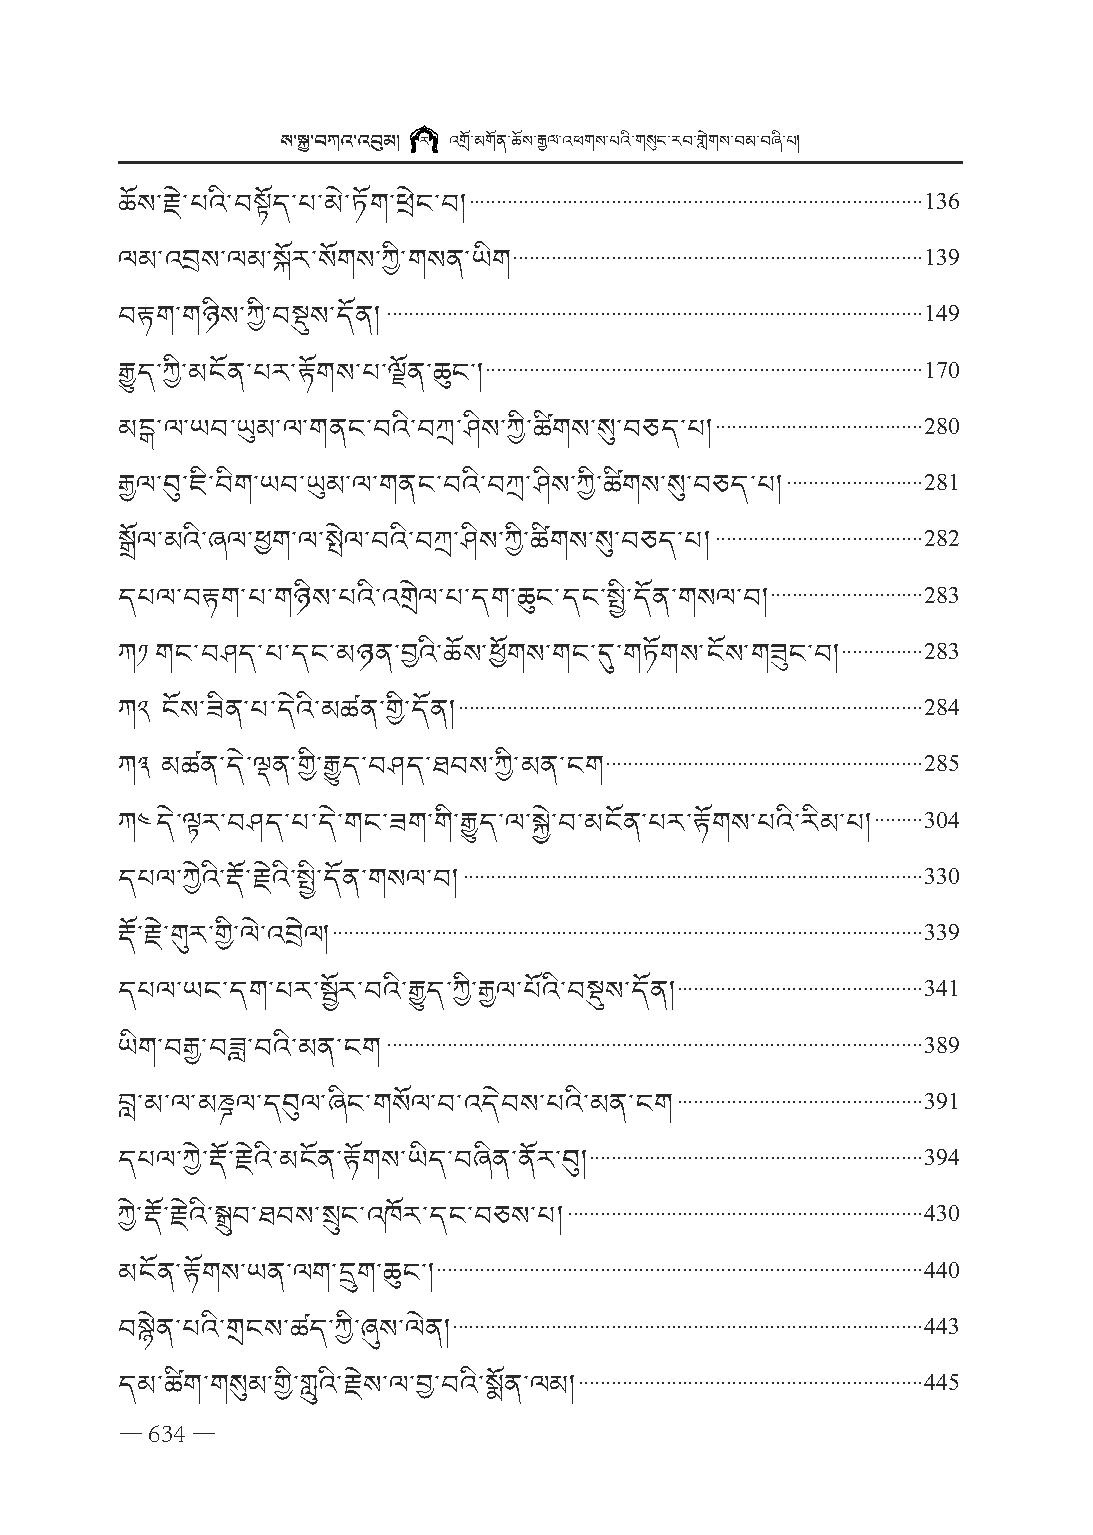 ས་སྐྱ་བཀའ་འབུམ། འགྲོ་མགོན་ཆོས་རྒྱལ་འཕགས་པའི་གསུང་རབ་གླེགས་བམ་བཞི་པ།
ཆོས་རྗེ་པའི་བསྟོད་པ་མེ་ཏོག་ཕྲེང་བ། 136
ལམ་འབྲས་ལམ་སྐོར་སོགས་ཀྱི་གསན་ཡིག 139
བརྟག་གཉིས་ཀྱི་བསྡུས་དོན། 149
རྒྱུད་ཀྱི་མངོན་པར་རྟོགས་པ་ལྗོན་ཆུང་། 170
མངྒ་ལ་ཡབ་ཡུམ་ལ་གནང་བའི་བཀྲ་ཤིས་ཀྱི་ཚིགས་སུ་བཅད་པ། 280
རྒྱལ་བུ་ཇི་བིག་ཡབ་ཡུམ་ལ་གནང་བའི་བཀྲ་ཤིས་ཀྱི་ཚིགས་སུ་བཅད་པ། 281
སྒྲོལ་མའི་ཞལ་ཕྱག་ལ་སྤེལ་བའི་བཀྲ་ཤིས་ཀྱི་ཚིགས་སུ་བཅད་པ། 282
དཔལ་བརྟག་པ་གཉིས་པའི་འགྲེལ་པ་དག་ཆུང་དང་སྤྱི་དོན་གསལ་བ། 283
ཀ༡ གང་བཤད་པ་དང་མཉན་བྱའི་ཆོས་ཕྱོགས་གང་དུ་གཏོགས་ངོས་གཟུང་བ། 283
ཀ༢ ངོས་ཟིན་པ་དེའི་མཚན་གྱི་དོན། 284
ཀ༣ མཚན་དེ་ལྡན་གྱི་རྒྱུད་བཤད་ཐབས་ཀྱི་མན་ངག 285
ཀ༤ དེ་ལྟར་བཤད་པ་དེ་གང་ཟག་གི་རྒྱུད་ལ་སྐྱེ་བ་མངོན་པར་རྟོགས་པའི་རིམ་པ། 304
དཔལ་ཀྱེའི་རྡོ་རྗེའི་སྤྱི་དོན་གསལ་བ། 330
རྡོ་རྗེ་གུར་གྱི་ལེ་འབྲེལ། 339
དཔལ་ཡང་དག་པར་སྦྱོར་བའི་རྒྱུད་ཀྱི་རྒྱལ་པོའི་བསྡུས་དོན། 341
ཡིག་བརྒྱ་བཟླ་བའི་མན་ངག 389
བླ་མ་ལ་མཎྜལ་དབུལ་ཞིང་གསོལ་བ་འདེབས་པའི་མན་ངག 391
དཔལ་ཀྱེ་རྡོ་རྗེའི་མངོན་རྟོགས་ཡིད་བཞིན་ནོར་བུ། 394
ཀྱེ་རྡོ་རྗེའི་སྒྲུབ་ཐབས་སྲུང་འཁོར་དང་བཅས་པ། 430
མངོན་རྟོགས་ཡན་ལག་དྲུག་ཆུང་། 440
བསྙེན་པའི་གྲངས་ཚད་ཀྱི་ཞུས་ལེན། 443
དམ་ཚིག་གསུམ་གྱི་གླུའི་རྗེས་ལ་བྱ་བའི་སྨོན་ལམ། 445
— 634 —